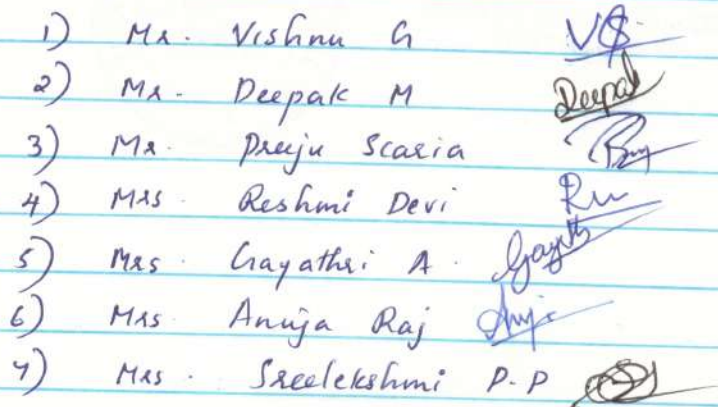 1) Mr. Vishnu G
2) Mr. Deepak M Deepak
3) Mr. Preiju Scaria
4) Mrs. Reshmi Devi
5) Mrs. Gayathri A.
6) Mrs Anuja Raj
7) Mrs. Sreelekshmi P.P